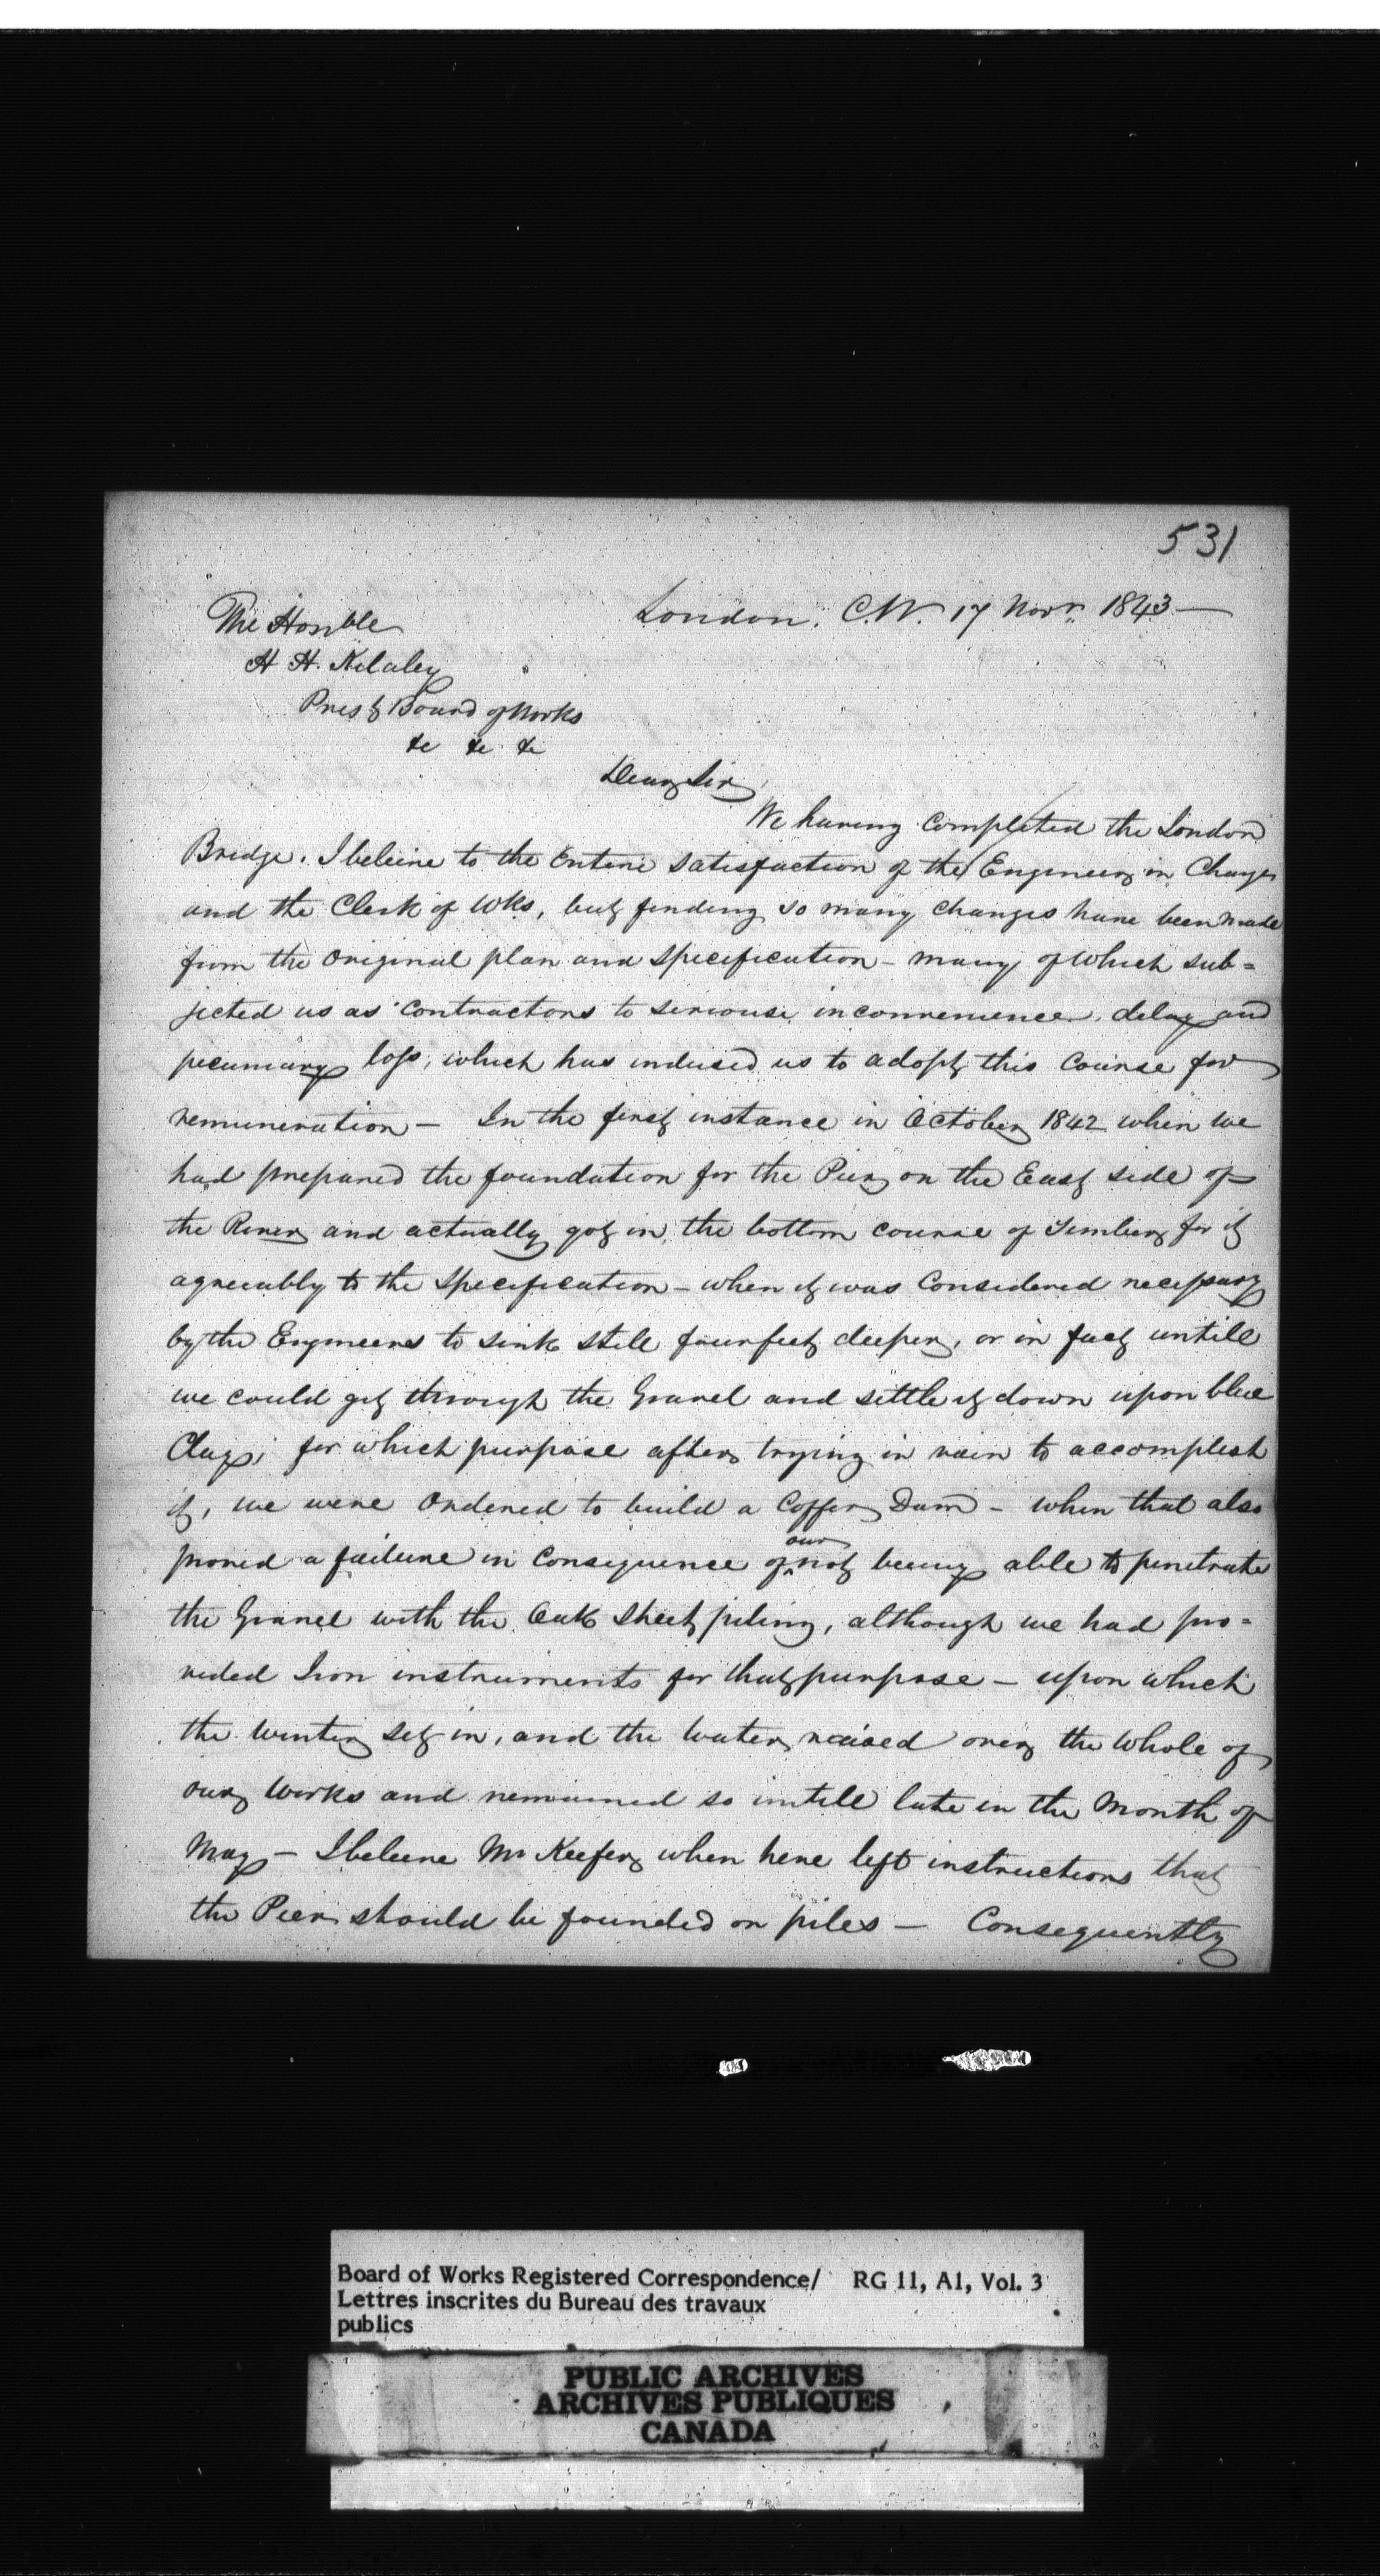 531
London. C.W. 17 Novr. 1843 —
The Honble
H H. Kilaley
Prest Board of Works
&c &c &c
Dear Sir,
We having completed the London
Bridge. I beleive to the Entire satisfaction of the Engineer in Charge
and the Clerk of Wks, but finding so many changes have been made
from the original plan and specification – many of which sub=
jected us as Contractors to seriouse inconvenience, delay and
pecuniary loss, which has induced us to adopt this Course for
remuneration — In the first instance in October 1842 when we
had prepared the foundation for the Pier on the East side of
the River and actually got in the bottom course of Timber for it
agreeably to the Specification – when it was Considered necessary
by the Engineers to sink still four feet deeper, or in fact untill
we could get through the Gravel and settle it down upon blue
Clay, for which purpose after trying in vain to accomplish
it, we were Ordered to build a Coffer Dam – when that also
proved a failure in Consequence of our not being able to penetrate
the Gravel with the Oak Sheet piling, although we had pro=
vided Iron instruments for that purpose – upon which
the winter set in, and the water raised over the whole of
our works and remained so untill late in the Month of
May – I beleive Mr Keefer when here left instructions that
the Pier should be founded on piles — Consequently
Board of Works Registered Correspondence/ RG 11, A1, Vol. 3
Lettres inscrites du Bureau des travaux
publics
PUBLIC ARCHIVES
ARCHIVES PUBLIQUES
CANADA